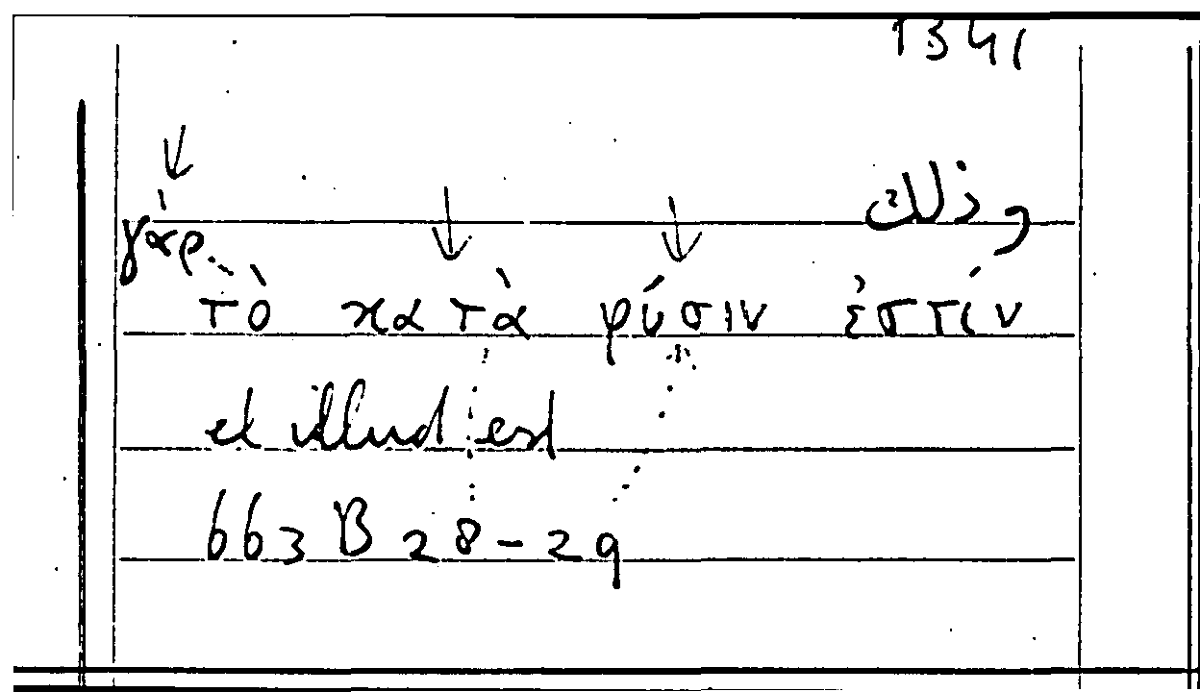 1341
وذلك
γάρ
τὸ κατὰ φύσιν ἐστίν
et illud est
663 B 28-29